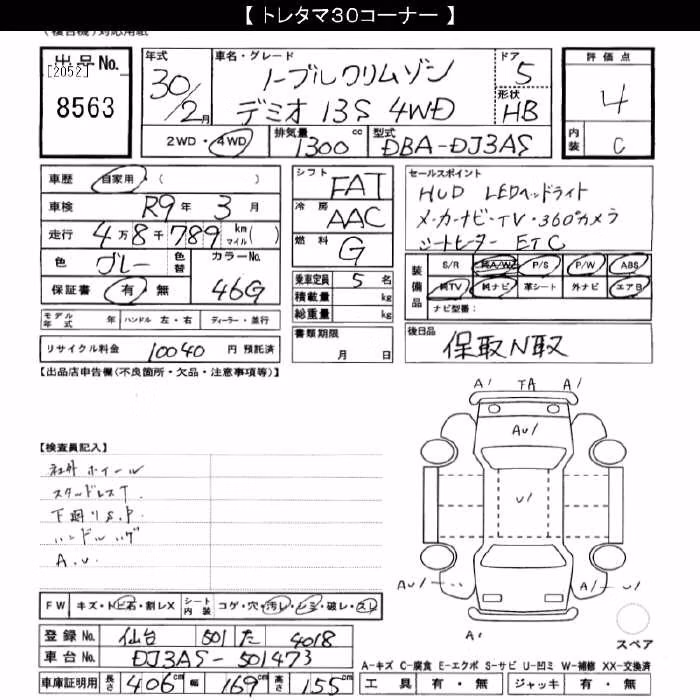 【 トレタマ30コーナー 】
(複合機)対応用紙
出品No.
[2052]
8563
年式
30/2月
車名・グレード
ノーブルクリムゾン
デミオ 13S 4WD
ドア
5
形状
HB
評価点
4
内装
C
2WD・4WD
排気量
1300cc
型式
DBA-DJ3AS
車歴 自家用・( )
車検 R9年 3月
走行 4万8千789 km マイル( )
色 グレー 色替 カラーNo. 46G
保証書 有・無
シフト FAT
冷房 AAC
燃料 G
乗車定員 5名
積載量 kg
総重量 kg
セールスポイント
HUD LEDヘッドライト
メーカーナビ・TV・360°カメラ
シートヒーター ETC
装備品 S/R 純A/W P/S P/W ABS
純TV 純ナビ 革シート 外ナビ エアB
ナビ型番:
モデル年式 年 ハンドル 左・右 ディーラー・並行
書類期限
月 日
後日品
保取N取
リサイクル料金 10040円 預託済
【出品店申告欄(不良箇所・欠品・注意事項等)】
A1 TA A1
AU1
【検査員記入】
社外ホイール
スタッドレスT.
下廻りS.P.
ハンドルハゲ
A.U.
U1
AU1 AU1
A1
FW キズ・トビ石・割レX シート内装 コゲ・穴・汚レ・シミ・破レ・スレ
スペア
登録No. 仙台 501 た 4018
車台No. DJ3AS-501473
A-キズ C-腐食 E-エクボ S-サビ U-凹ミ W-補修 XX-交換済
車庫証明用 長さ 406cm 幅 169cm 高さ 155cm
工具 有・無 ジャッキ 有・無